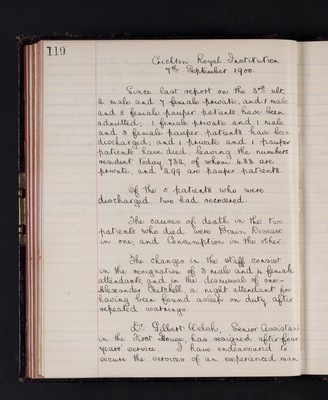 119
Crichton Royal Institution
7th September 1900.
Since last report on the 3rd ult.
2 male and 7 female private, and 1 male
and 5 female pauper patients have been
admitted; 1 female private and 1 male
and 3 female pauper patients have been
discharged; and 1 private and 1 pauper
patients have died, leaving the numbers
resident today 732, of whom 433 are
private, and 299 are pauper patients.
Of the 5 patients who were
discharged two had recovered.
The causes of death in the two
patients who died were Brain Disease
in one, and Consumption in the other.
The changes in the staff consist
in the resignation of 3 male and 4 female
attendants, and in the dismissal of one—
Alexander, a night attendant for
having been found asleep on duty after
repeated warnings.
Dr. Gilbert Welsh, Senior Assistant
in the First House, has resigned after four
years' service. I have endeavoured to
secure the services of an experienced man